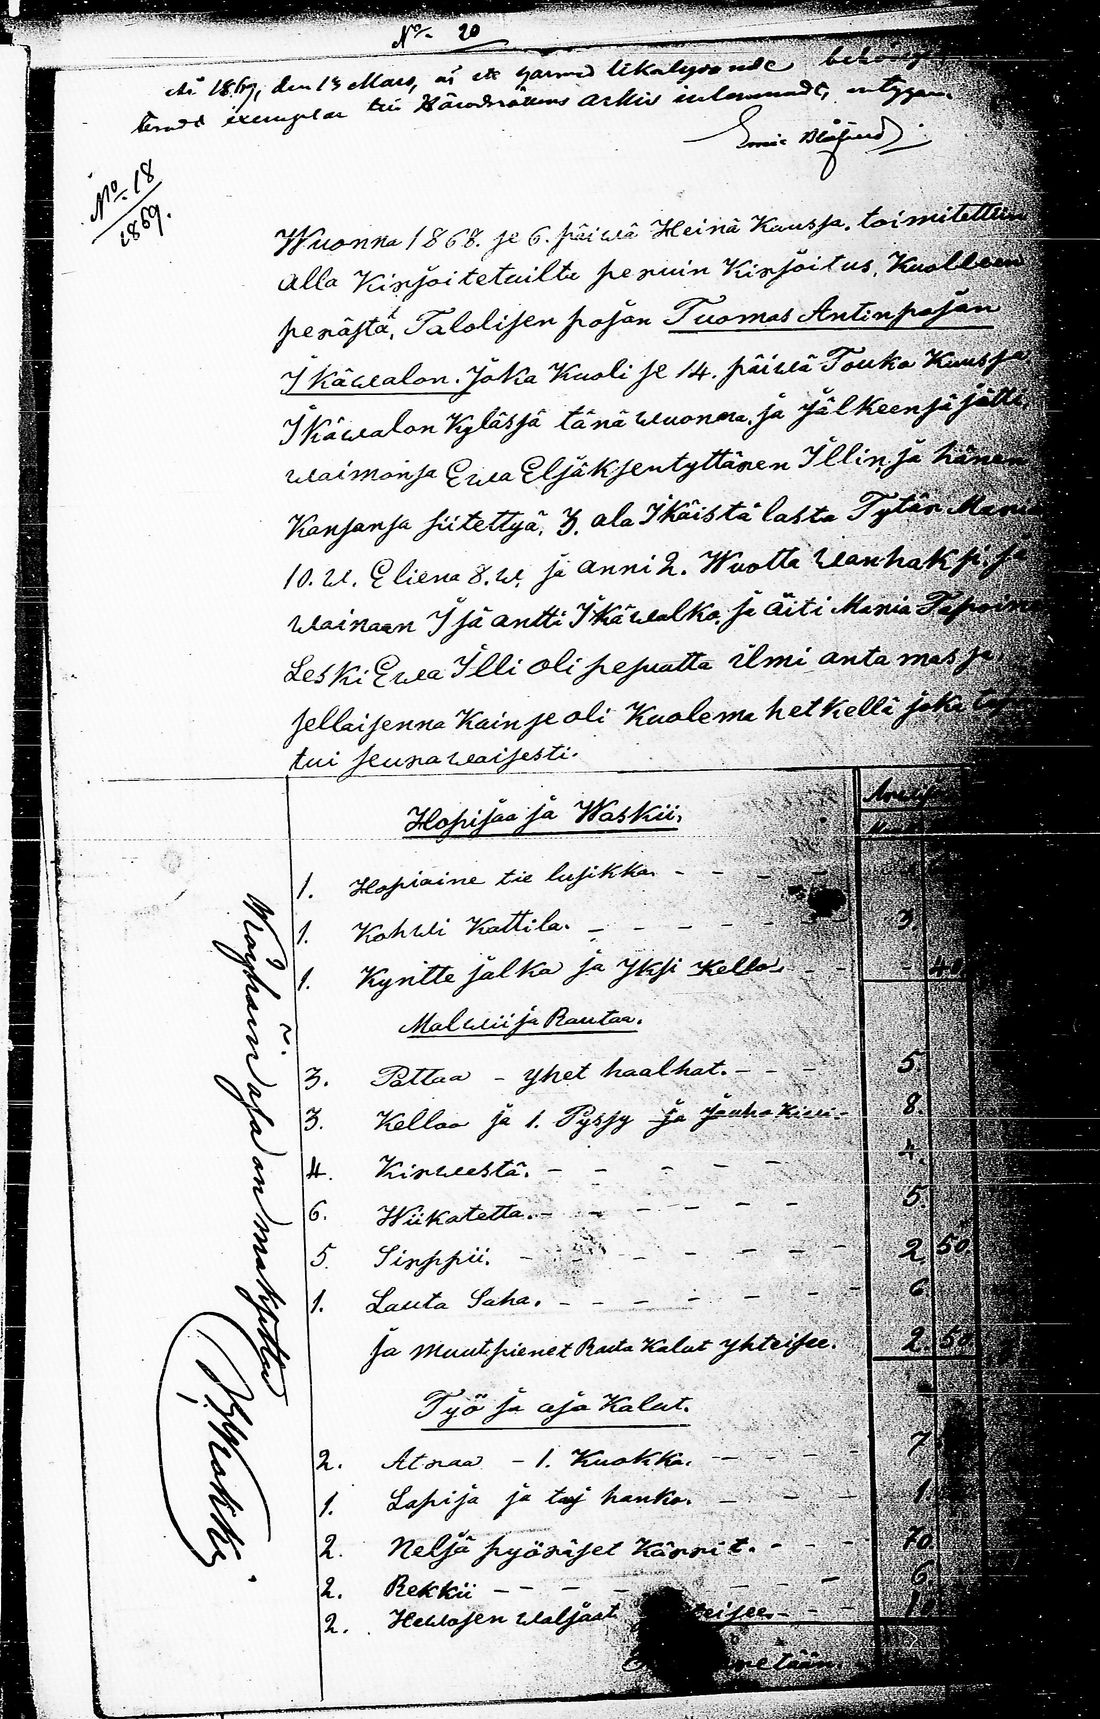 No 20
År 1869, den 13 Mars, är ett härmed likalydande behörigt
exemplar till Häradsrättens arkiv inlemnadt,
No 18
1869.
Wuonna 1868. se 6. päiwä Heinä Kuussa. toimitettiin
alla Kirjoitetuilta peruin Kirjoitus, Kuolleen
perästä, Talolisen pojan Tuomas Antinpojan
Ikäwalon. Joka Kuoli se 14. päiwä Touko Kuussa
Ikäwalon Kylässä tänä wuonna. ja jälkeensä jätti
waimonsa Ewa Eljäksentyttären Illin, ja hänen
Kansansa siitettyä, 3. ala Ikäistä lasta Tytär Maria
10. w. Eliena 8. w. ja anni 2. Wuotta wanhaksi. ja
wainaan Isä antti Ikäwalko, ja äiti Maria
Leski Ewa Illi oli pesuatta ilmi antamassa
sellaisenna Kuin se oli Kuolema hetkellä joka tap
tui seurawaisesti.
Hopijaa ja Waskii.
1. Hopiaine tie lusikka. - - - -
1. Kohwi Kattila. - - - - - 3.
1. Kyntte jalka ja yksi Kello. - - - 40
Malwii ja Rautaa.
3. Pattaa - yhet haalhat. - - - 5
3. Kelloo ja 1. Pyssy ja Jauho Kiwi. - 8.
4. Kirwestä. - - - - - 4.
6. Wiikatetta. - - - - - 5.
5. Sirppii. - - - - - - 2. 50.
1. Lauta Saha. - - - - - - 6
ja muut pienet Rauta Kalut yhteisee. 2. 50
Työ ja aja Kalut.
2. Atraa - 1. Kuokka. - - - - 7
1. Lapija ja taj hanko. - - - 1.
2. Neljä pyöräset Kärrit. - - - 70.
2. Rekkii - - - - - - 6.
2. Hewosen waljaat yhteisee. - - - 10
Waywain asa on maksettu